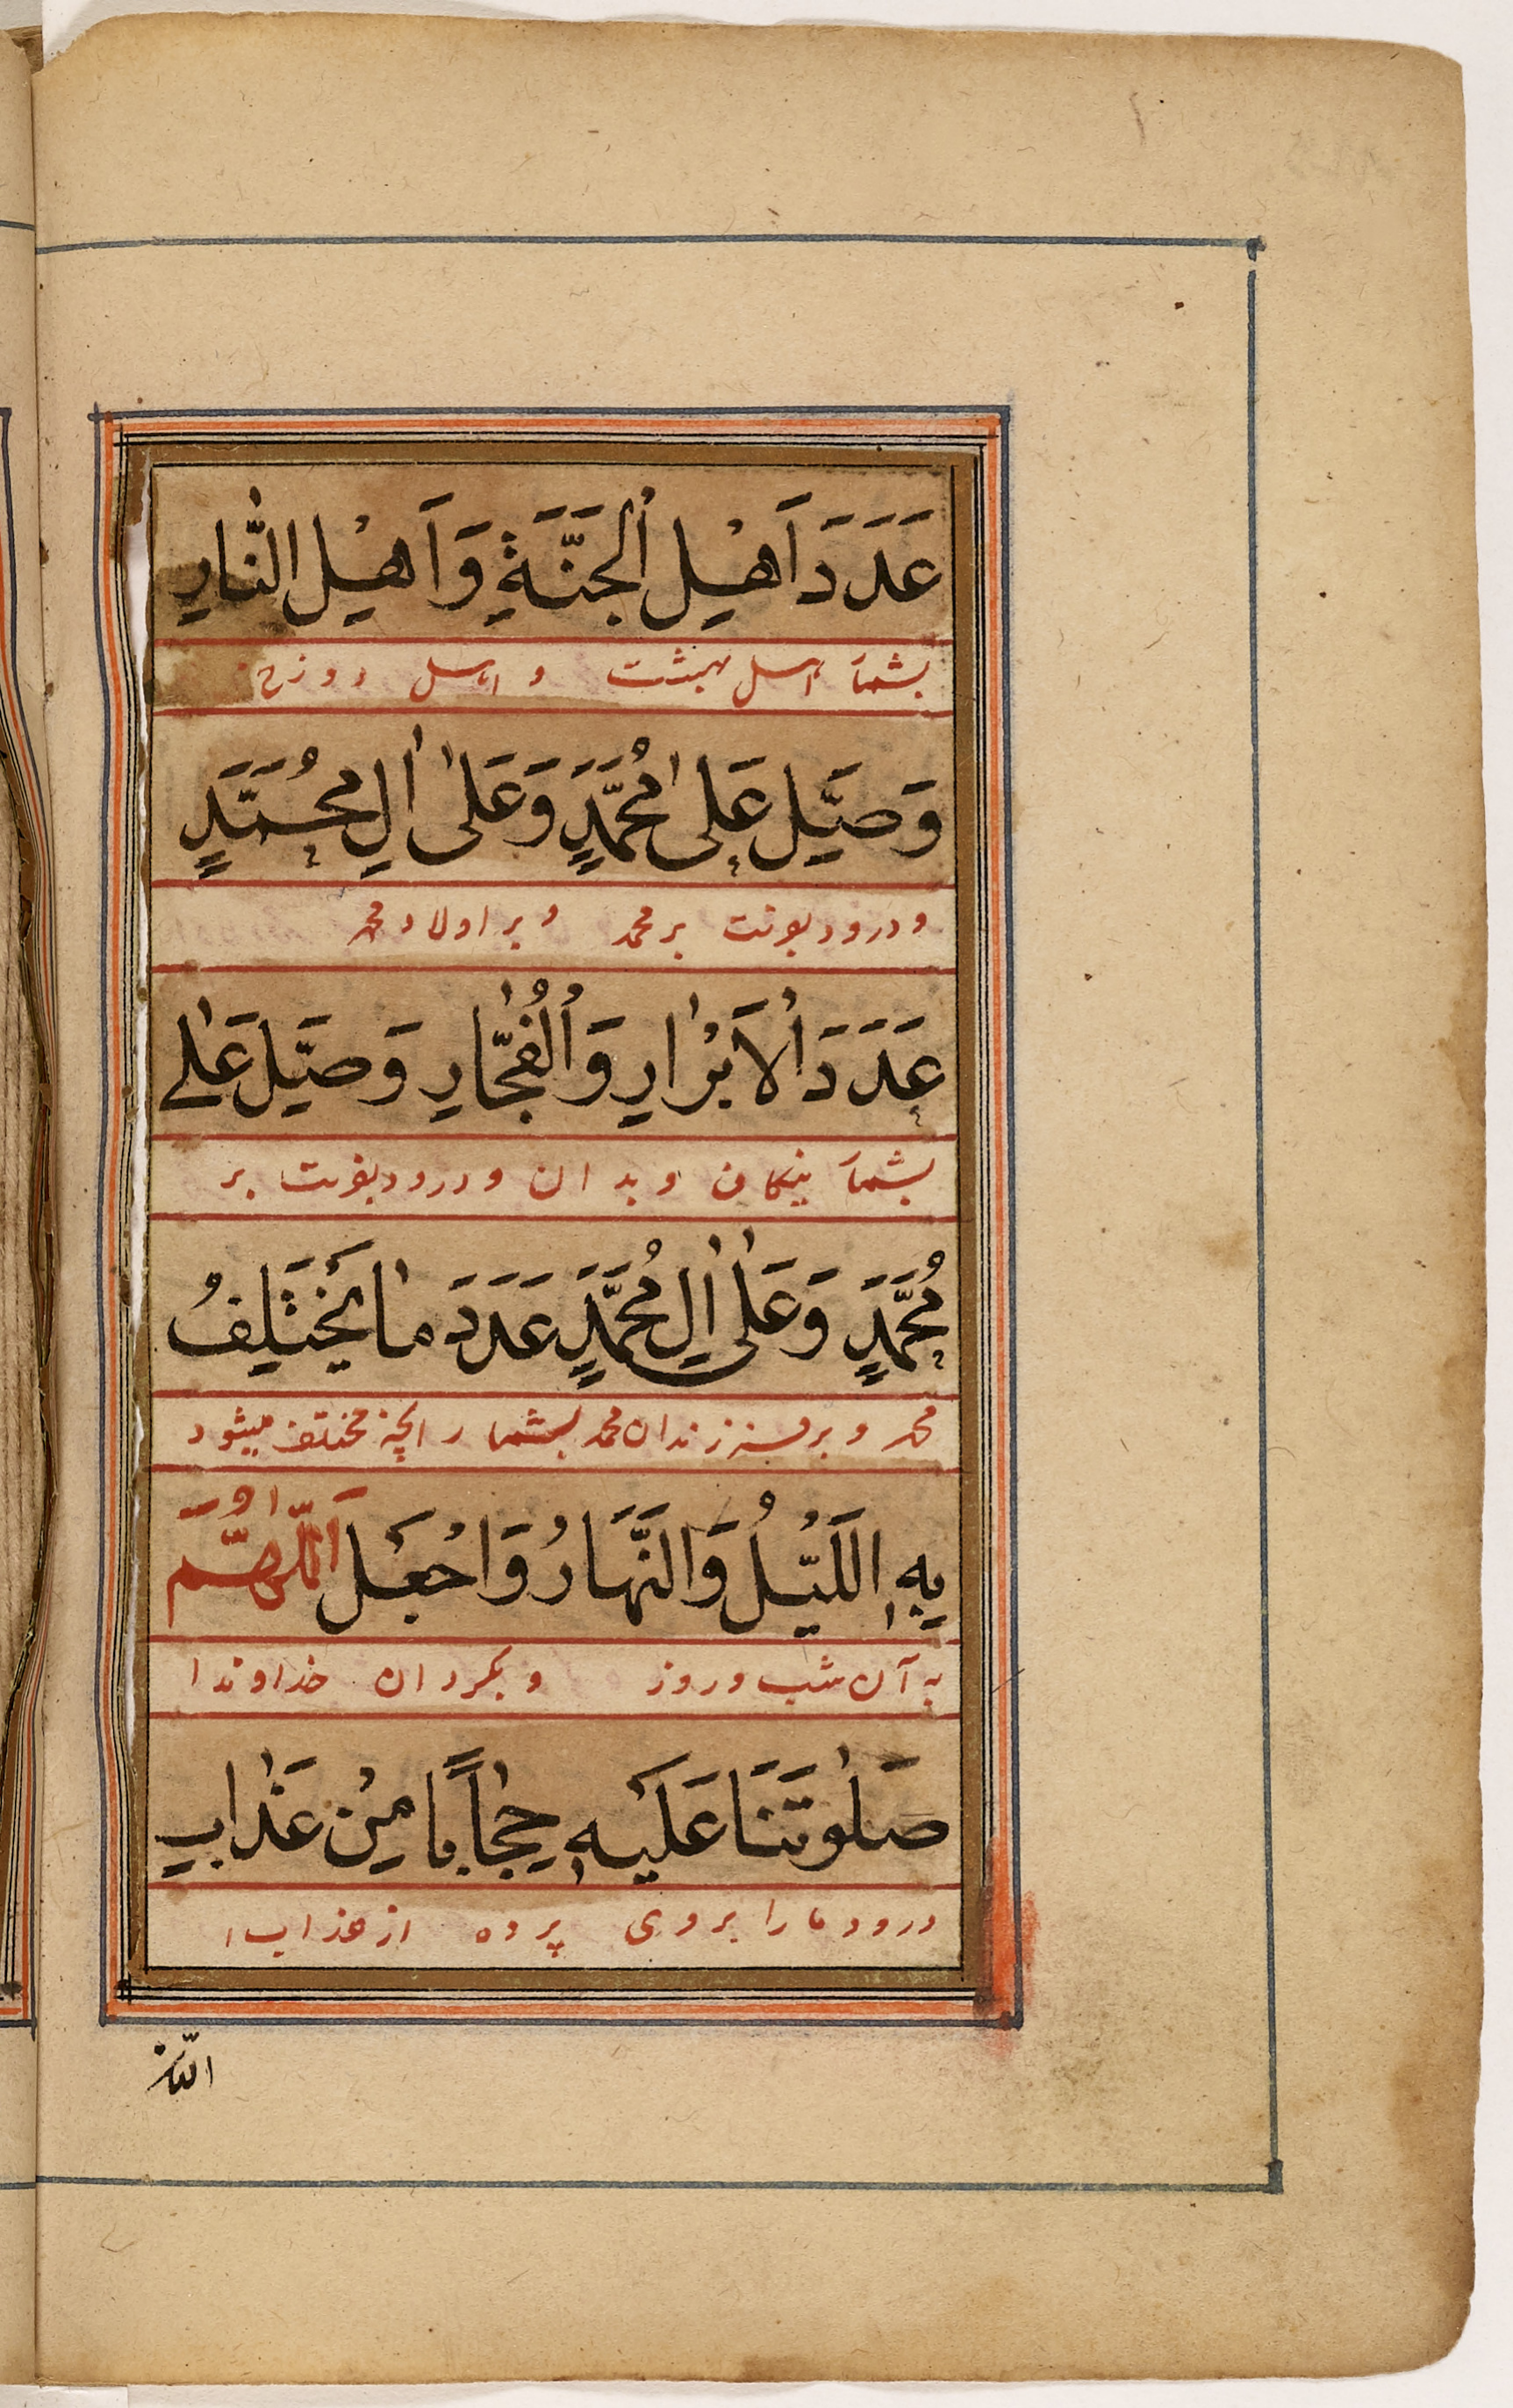 عَدَدَ اَهْلِ اْلجَنَّةِ وَ اَهْلِ النّٰارِ
بشمار اهل بهشت و اهل دوزخ
وَصَلِّ عَلٰى مُحَمَّدٍ وَعَلٰى اٰلِ مُحَمَّدٍ
و درود بفرست بر محمد و بر اولاد محمد
عَدَدَ اْلاَبْرٰارِ وَ اْلفُجّٰارِ وَصَلِّ عَلٰے
بشمار نیکان و بدان و درود بفرست بر
مُحَمَّدٍ وَعَلٰى اٰلِ مُحَمَّدٍ عَدَدَ مٰا يَخْتَلِفُ
محمد و بر فرزندان محمد بشمار آنچه مختلف میشود
بِهِ اللَّيْلُ وَالنَّهَارُ وَاجْعَلِ اَللّٰهُمَّ
به آن شب و روز و بگردان خداوندا
صَلٰوتَنَا عَلَيْهِ حِجٰاباً مِنْ عَذٰابِ
درود ما را بر وی پرده از عذاب
النّار